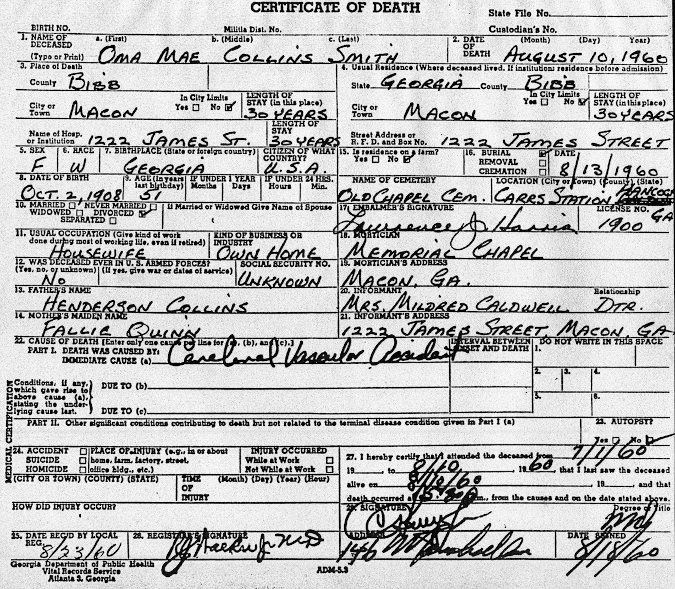 CERTIFICATE OF DEATH
State File No.
BIRTH NO. Militia Dist. No. Custodian's No.
1. NAME OF DECEASED (Type or Print) a. (First) b. (Middle) c. (Last) 2. DATE OF DEATH (Month) (Day) (Year)
OMA MAE COLLINS SMITH AUGUST 10, 1960
3. Place of Death 4. Usual Residence (Where deceased lived. If institution: residence before admission)
County BIBB State GEORGIA County BIBB
City or Town MACON In City Limits Yes No LENGTH OF STAY (in this place) 30 YEARS
City or Town MACON In City Limits Yes No LENGTH OF STAY (in this place) 30 YEARS
Name of Hosp. or Institution 1222 JAMES ST. LENGTH OF STAY (in this place) 30 YEARS
Street Address or R. F. D. and Box No. 1222 JAMES STREET
5. SEX F 6. RACE W 7. BIRTHPLACE (State or foreign country) GEORGIA CITIZEN OF WHAT COUNTRY? U.S.A.
15. Is residence on a farm? Yes No 16. BURIAL REMOVAL CREMATION DATE 8/13/1960
8. DATE OF BIRTH OCT. 2, 1908 9. AGE (In years last birthday) 51 IF UNDER 1 YEAR Months Days IF UNDER 24 HRS. Hours Min.
NAME OF CEMETERY OLD CHAPEL CEM. LOCATION (City or Town) (County) (State) CARRS STATION HANCOCK GA
10. MARRIED NEVER MARRIED WIDOWED DIVORCED SEPARATED If Married or Widowed Give Name of Spouse
17. EMBALMER'S SIGNATURE Lawrence J. Harris LICENSE NO. 1900
11. USUAL OCCUPATION (Give kind of work done during most of working life, even if retired) HOUSEWIFE KIND OF BUSINESS OR INDUSTRY OWN HOME
18. MORTICIAN MEMORIAL CHAPEL
12. WAS DECEASED EVER IN U. S. ARMED FORCES? (Yes, no, or unknown) (If yes, give war or dates of service) NO SOCIAL SECURITY NO. UNKNOWN
19. MORTICIAN'S ADDRESS MACON, GA.
13. FATHER'S NAME HENDERSON COLLINS
20. INFORMANT MRS. MILDRED CALDWELL Relationship DTR.
14. MOTHER'S MAIDEN NAME FALLIE QUINN
21. INFORMANT'S ADDRESS 1222 JAMES STREET, MACON, GA
22. CAUSE OF DEATH (Enter only one cause per line for (a), (b), and (c).) INTERVAL BETWEEN ONSET AND DEATH DO NOT WRITE IN THIS SPACE
PART I. DEATH WAS CAUSED BY: IMMEDIATE CAUSE (a) Cerebral Vascular Accident
1.
2. 3. 4.
5. 6.
MEDICAL CERTIFICATION
Conditions, if any, which gave rise to above cause (a), stating the underlying cause last. DUE TO (b)
DUE TO (c)
PART II. Other significant conditions contributing to death but not related to the terminal disease condition given in Part I (a)
23. AUTOPSY? Yes No
24. ACCIDENT SUICIDE HOMICIDE PLACE OF INJURY (e.g., in or about home, farm, factory, street, office bldg., etc.) INJURY OCCURRED While at Work Not While at Work
(CITY OR TOWN) (COUNTY) (STATE) TIME OF INJURY (Month) (Day) (Year) (Hour)
27. I hereby certify that I attended the deceased from 7/1/60
19 , to 8/10 , 1960 that I last saw the deceased
alive on 8/10/60 , 19 , and that
death occurred at m., from the causes and on the date stated above.
HOW DID INJURY OCCUR?
28. SIGNATURE Degree or Title MD
25. DATE REC'D BY LOCAL REG. 8/23/60 26. REGISTRAR'S SIGNATURE
ADDRESS DATE SIGNED 8/18/60
Georgia Department of Public Health
Vital Records Service
Atlanta 3, Georgia
ADM-5.3